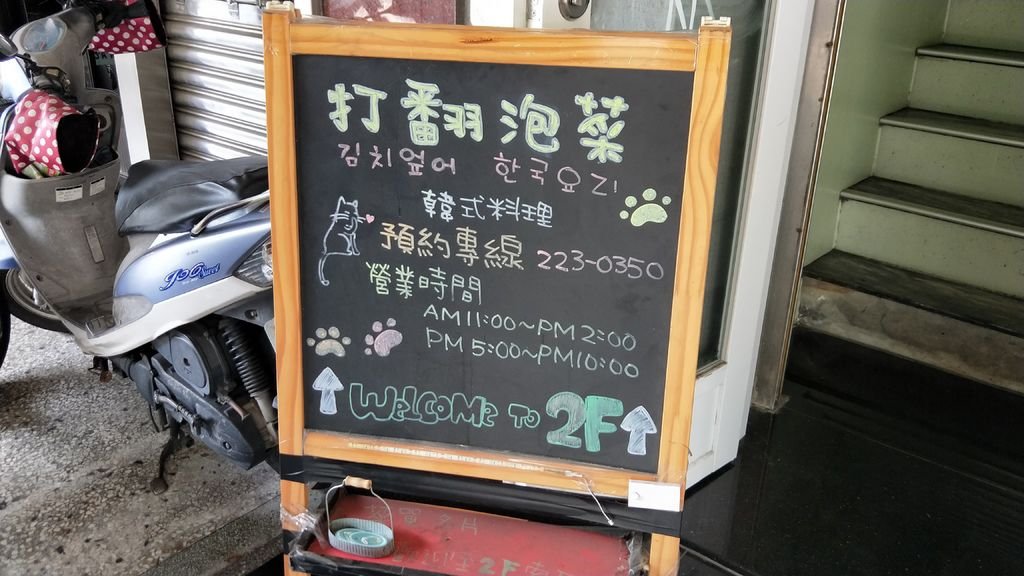 打翻泡菜
김치엎어 한국요리
韓式料理
預約專線 223-0350
營業時間
AM11:00~PM2:00
PM5:00~PM10:00
WELCOME TO 2F
2F